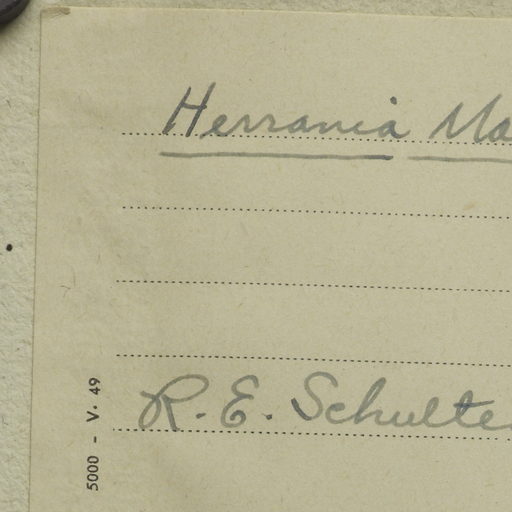 Herrania Ma
R. E. Schulte
5000 - V. 49